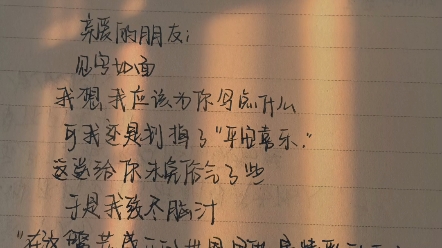 亲爱的朋友：
见字如面
我想我应该为你写点什么
可我还是划掉了“平安喜乐.”
这说给你未免俗气了些
于是我绞尽脑汁
“在这